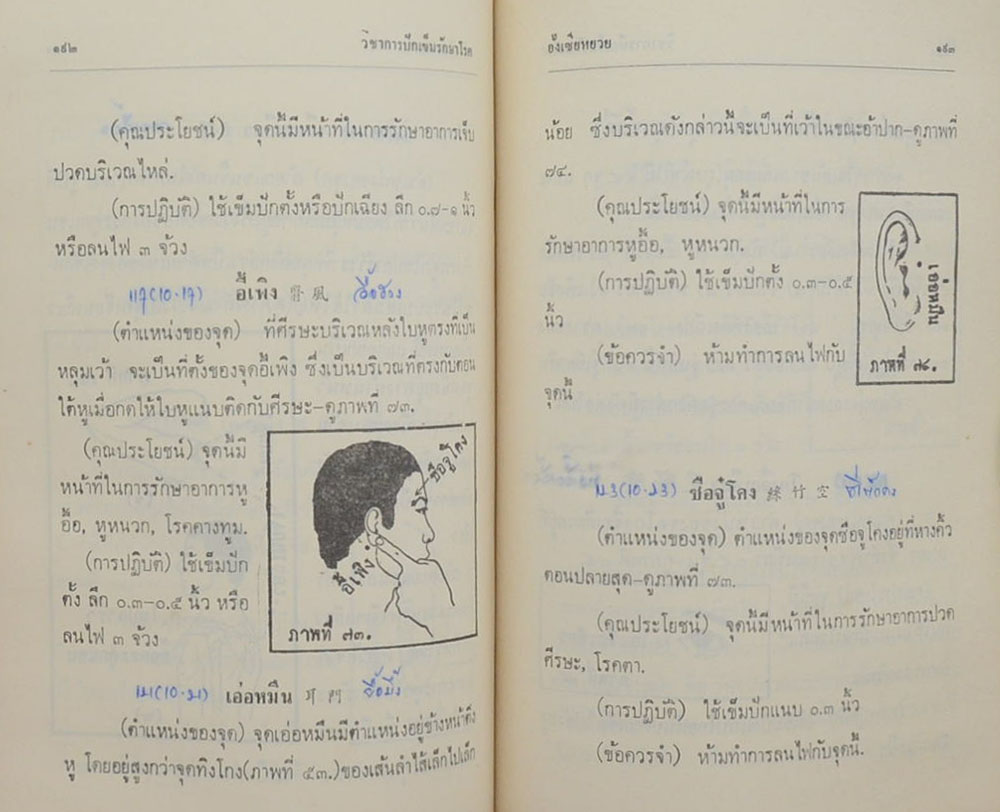 ๑๙๒ วิชาการปักเข็มรักษาโรค
(คุณประโยชน์) จุดนี้มีหน้าที่ในการรักษาอาการเจ็บ
ปวดบริเวณไหล่.
(การปฏิบัติ) ใช้เข็มปักตั้งหรือปักเฉียง ลึก ๐.๗-๑ นิ้ว
หรือลนไฟ ๓ จ้วง
อี้เพิง 翳風
(ตำแหน่งของจุด) ที่ศีรษะบริเวณหลังใบหูตรงที่เป็น
หลุมเว้า จะเป็นที่ตั้งของจุดอี้เพิง ซึ่งเป็นบริเวณที่ตรงกับตอน
ใต้หูเมื่อกดให้ใบหูแนบติดกับศีรษะ-ดูภาพที่ ๗๓.
(คุณประโยชน์) จุดนี้มี
หน้าที่ในการรักษาอาการหู
อื้อ, หูหนวก, โรคคางทูม.
(การปฏิบัติ) ใช้เข็มปัก
ตั้ง ลึก ๐.๓-๐.๕ นิ้ว หรือ
ลนไฟ ๓ จ้วง
ซือจู๋โคง
อี้เพิง
ภาพที่ ๗๓.
เอ่อหมึน 耳門
(ตำแหน่งของจุด) จุดเอ่อหมึนมีตำแหน่งอยู่ข้างหน้าติ่ง
หู โดยอยู่สูงกว่าจุดทิงโกง(ภาพที่ ๕๓.)ของเส้นลำไส้เล็กไปเล็ก
อั้งเซียหยวย ๑๙๓
น้อย ซึ่งบริเวณดังกล่าวนี้จะเป็นที่เว้าในขณะอ้าปาก-ดูภาพที่
๗๔.
(คุณประโยชน์) จุดนี้มีหน้าที่ในการ
รักษาอาการหูอื้อ, หูหนวก.
(การปฏิบัติ) ใช้เข็มปักตั้ง ๐.๓-๐.๕
นิ้ว
(ข้อควรจำ) ห้ามทำการลนไฟกับ
จุดนี้
เอ่อหมึน
ภาพที่ ๗๔.
๒๓(10.23) ซือจู๋โคง 絲竹空
(ตำแหน่งของจุด) ตำแหน่งของจุดซือจู๋โคงอยู่ที่หางคิ้ว
ตอนปลายสุด-ดูภาพที่ ๗๓.
(คุณประโยชน์) จุดนี้มีหน้าที่ในการรักษาอาการปวด
ศีรษะ, โรคตา.
(การปฏิบัติ) ใช้เข็มปักแนบ ๐.๓ นิ้ว
(ข้อควรจำ) ห้ามทำการลนไฟกับจุดนี้.